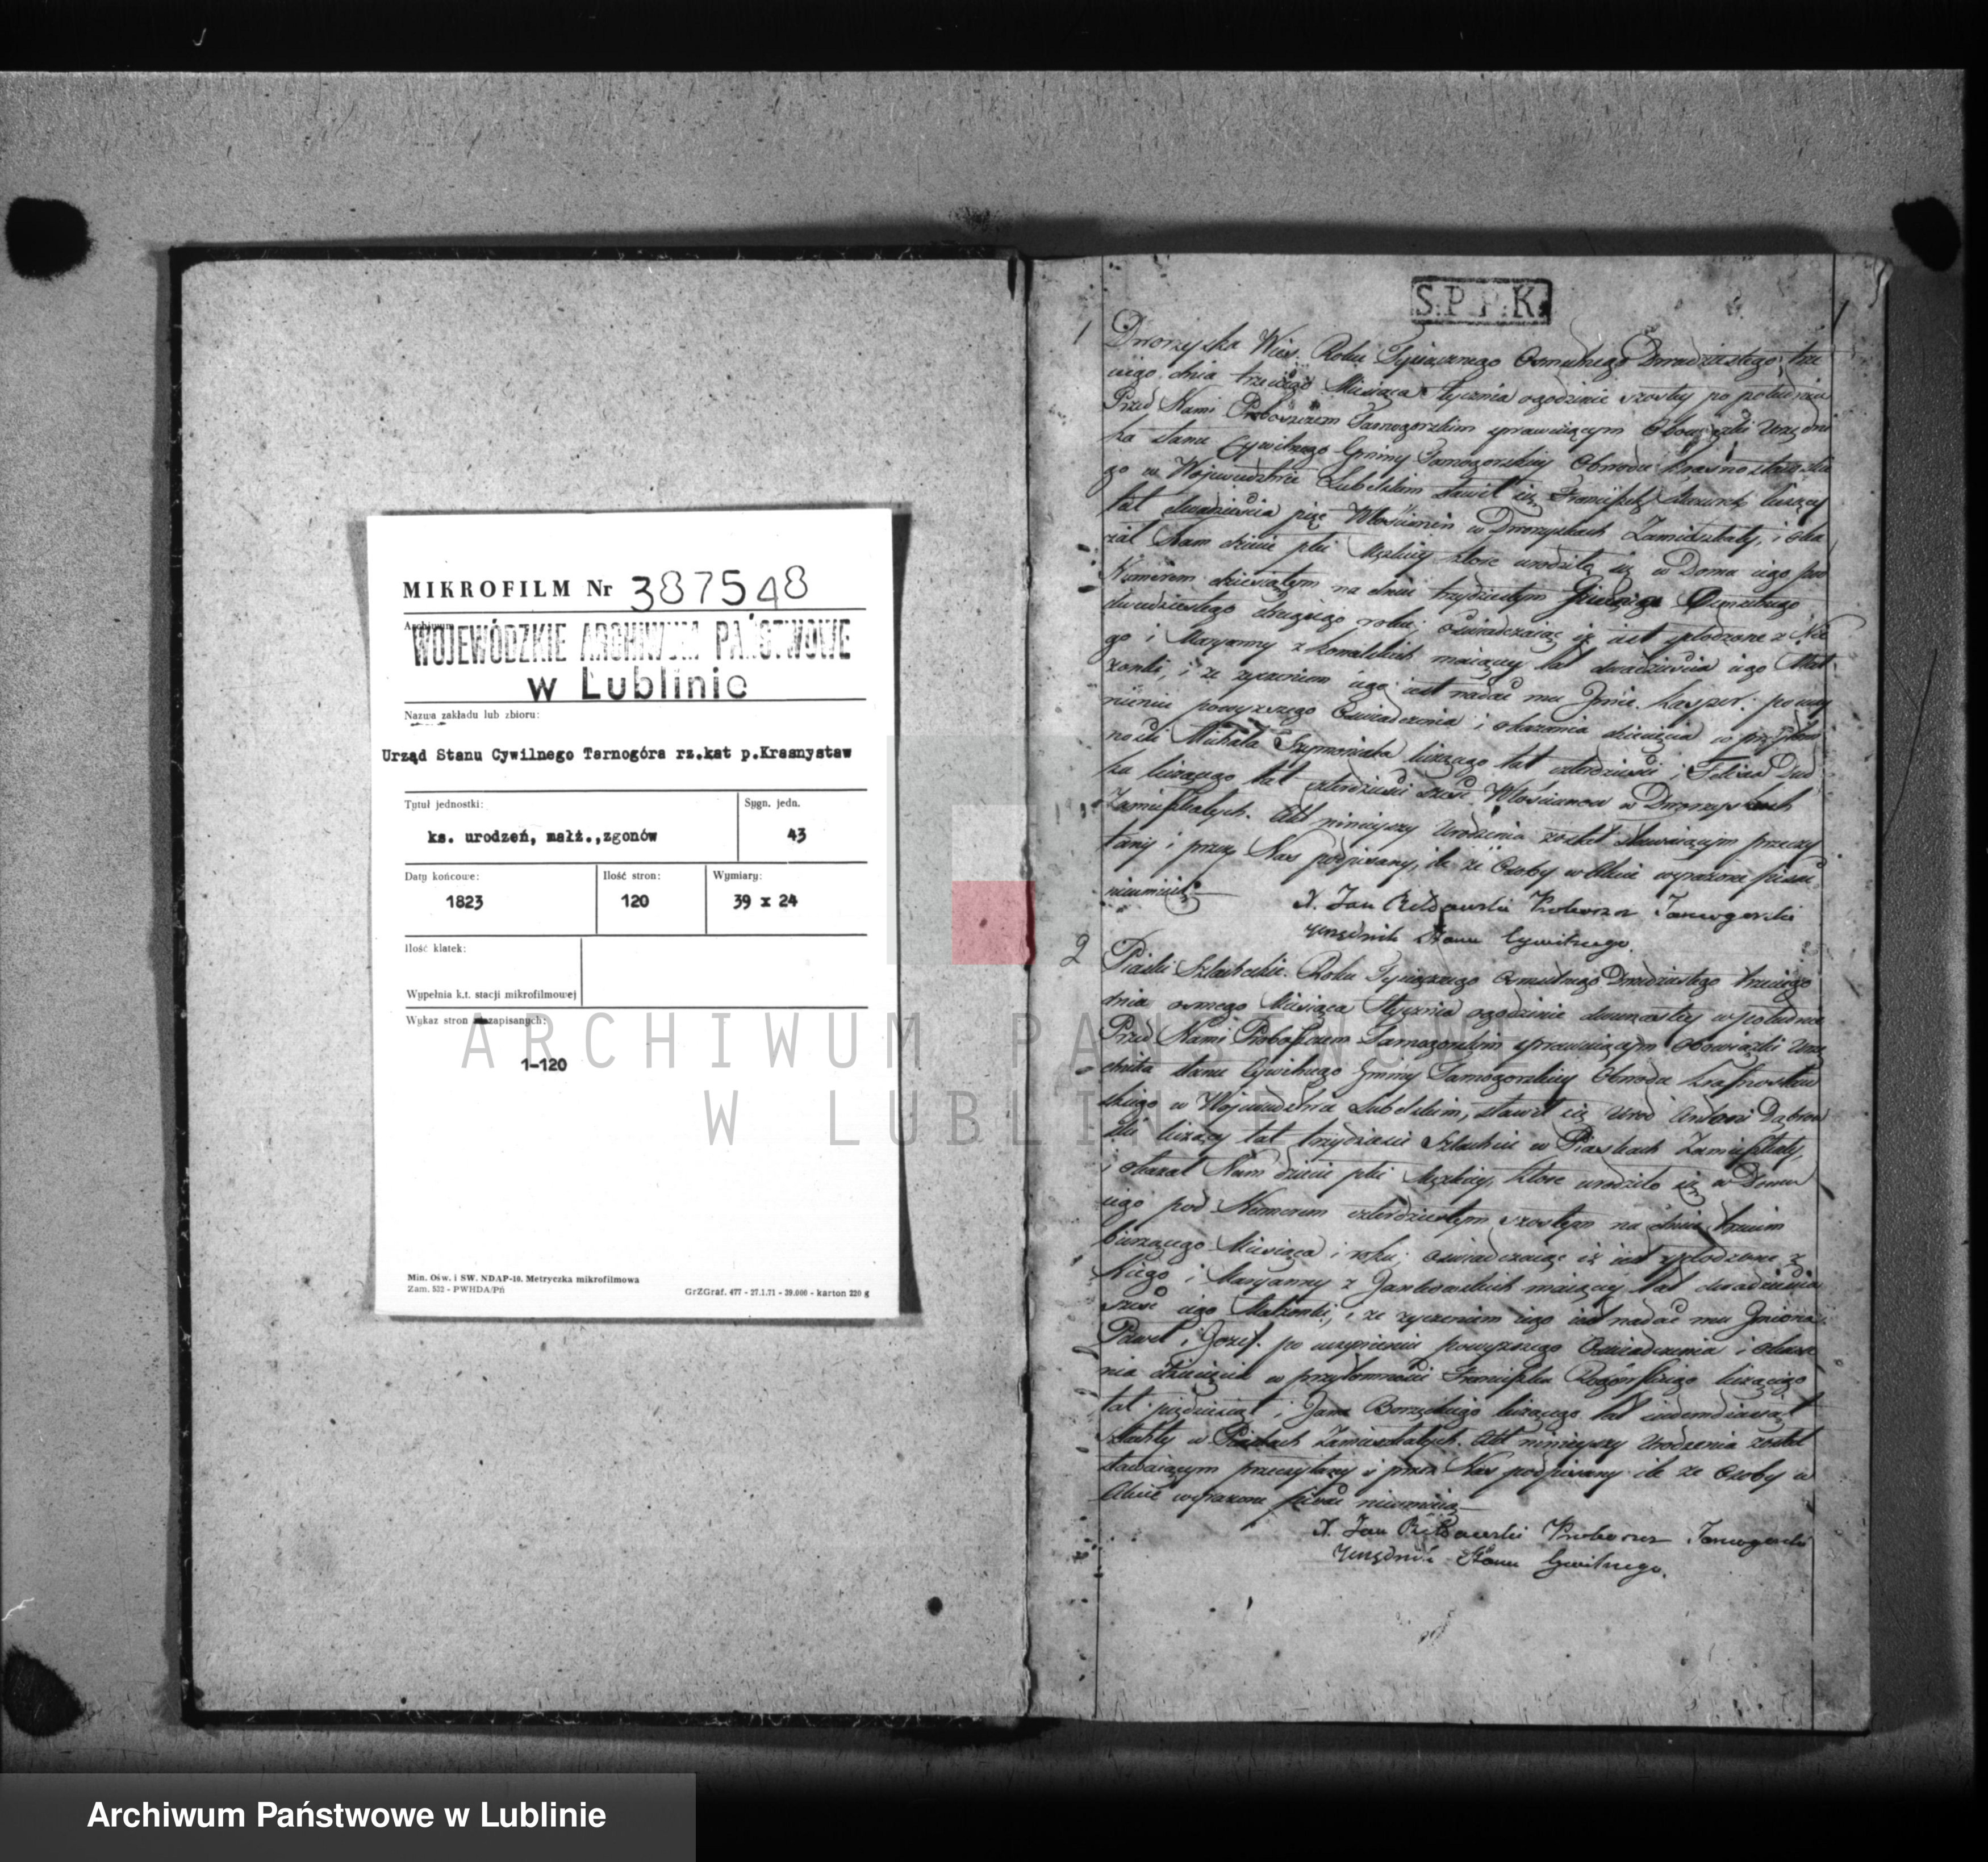 MIKROFILM Nr 387548
Archiwum
WOJEWÓDZKIE ARCHIWUM PAŃSTWOWE
w Lublinie
Nazwa zakładu lub zbioru:
Urząd Stanu Cywilnego Tarnogóra rz.kat p.Krasnystaw
Tytuł jednostki:
ks. urodzeń, małż.,zgonów
Sygn. jedn.
43
Daty końcowe:
1823
Ilość stron:
120
Wymiary:
39 x 24
Ilość klatek:
Wypełnia k.t. stacji mikrofilmowej
Wykaz stron zapisanych:
1-120
Min. Ośw. i SW. NDAP-10. Metryczka mikrofilmowa
Zam. 532 - PWHDA/Pń
GrZGraf. 477 - 27.1.71 - 39.000 - karton 220 g
S.P.P.K.
1
1
Dworzyska Wieś. Roku Tysiącznego Osmsetnego Dwudziestego trze
ciego dnia trzeciego Miesiąca Stycznia o godzinie szostey po południu
Przed Nami Proboszczem Tarnogorskim sprawuiącym Obowiązki Urzędni
ka stanu Cywilnego Gminy Tarnogorskiey Obwodu Krasnostawskie
go w Woiewodztwie Lubelskim stawił się Franciszek liczący
lat dwadzieścia pięć Włościanin w Dworzyskach Zamieszkały, i oka
zał Nam dziecie płci Męzkiey ktore urodziło się w Domu iego pod
Numerem dziesiątym na dniu trzydziestym Osmsetnego
dwudziestego drugiego roku; oświadczaiąc iż iest spłodzone z Nie
go i Maryanny z Kowalskich maiącey lat dwadzieścia iego Mał
zonki, i ze zyczeniem iego iest nadać mu Jmie Kasper. po uczy
nieniu powyzszego Oświadczenia i okazania dziecięcia w przytom
ności Michała Szymoniaka liczącego lat czterdzieści i Felixa Dud
ka liczącego lat czterdzieści sześć Włościanow w Dworzyskach
Zamieszkałych. Akt ninieyszy Urodzenia został stawaiącym przeczy
tany i przez Nas podpisany, ile że Osoby w Akcie wyrażone pisać
nieumieią
X. Jan Proboszcz Tarnogorski
Urzędnik Stanu Cywilnego.
2
Piaski Szlacheckie. Roku Tysiącznego Osmsetnego Dwudziestego trzeciego
dnia osmego Miesiąca Stycznia o godzinie dwunastey w południe
Przed Nami Proboszczem Tarnogorskim sprawuiącym Obowiązki Urzę
dnika stanu Cywilnego Gminy Tarnogorskiey Obwodu Krasnostaw
skiego w Woiewodztwie Lubelskim, stawił się Urod. Antoni Dąbrow
ski liczący lat trzydzieści Szlachcic w Piaskach Zamieszkały,
i okazał Nam dziecie płci Męzkiey, ktore urodziło się w Domu
iego pod Numerem czterdziestym szostym na dniu trzecim
bieżącego Miesiąca i roku; oświadczaiąc iż iest spłodzone z
Niego i Maryanny z Jankowskich maiącey lat dwadzieścia
sześć iego Małzonki, i ze zyczeniem iego iest nadać mu Jmiona
Paweł i Jozef. po uczynieniu powyzszego Oświadczenia i okaza
nia dziecięcia w przytomności Franciszka liczącego
lat pięćdziesiąt i Jana Borzęckiego liczącego lat siedemdziesiąt
Szlachty w Piaskach Zamieszkałych. Akt ninieyszy Urodzenia został
stawaiącym przeczytany i przez Nas podpisany ile ze Osoby w
Akcie wyrażone pisać nieumieią
X. Jan Proboszcz Tarnogorski
Urzędnik Stanu Cywilnego.
ARCHIWUM PAŃSTWOWE
W LUBLINIE
Archiwum Państwowe w Lublinie